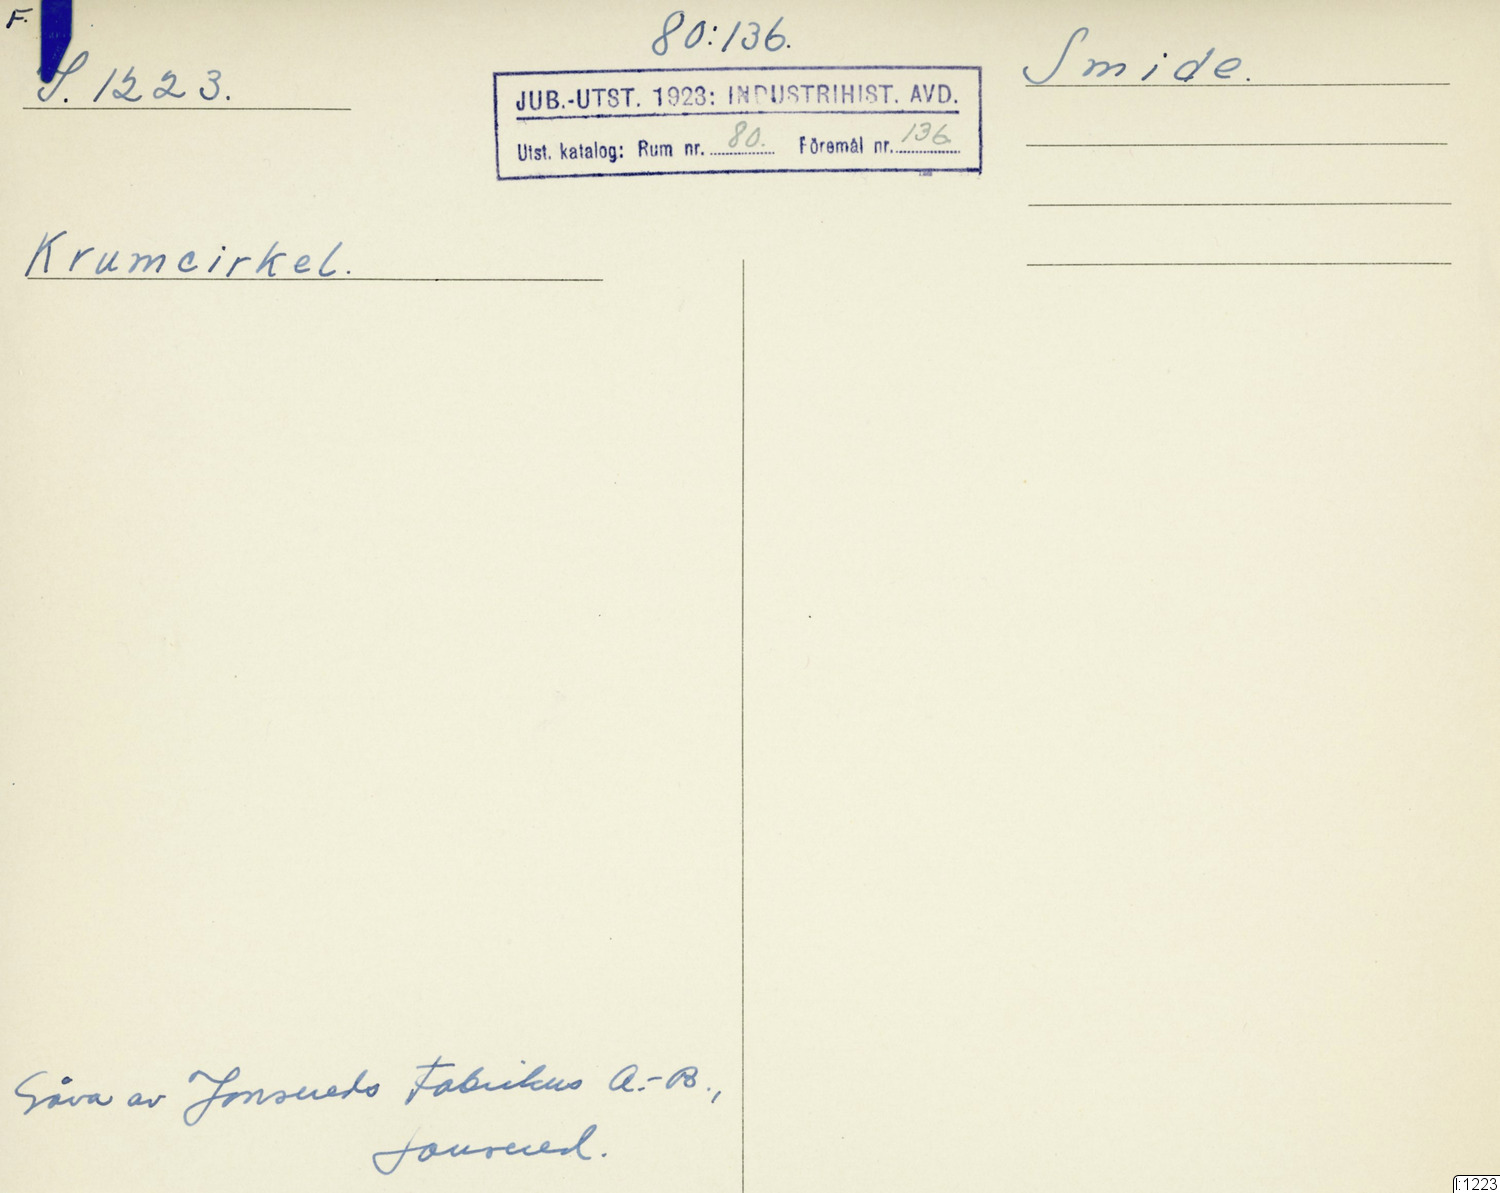 F.
I. 1223.
80:136.
JUB.-UTST. 1923: INDUSTRIHIST. AVD.
Utst. katalog: Rum nr. 80. Föremål nr. 136.
Smide.
Krumcirkel.
Gåva av Jonsereds Fabrikers A.-B.,
Jonsered.
I:1223